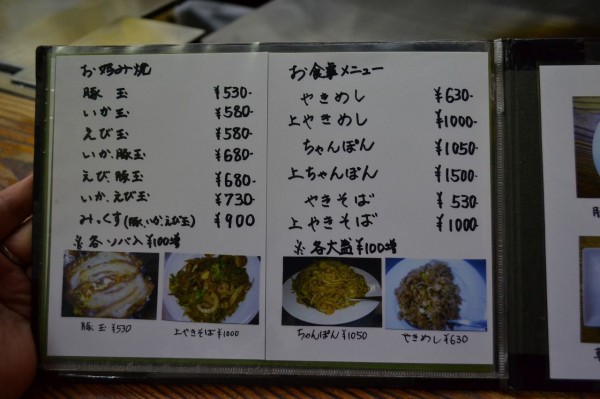 お好み焼
豚玉 ¥530-
いか玉 ¥580-
えび玉 ¥580-
いか、豚玉 ¥680-
えび、豚玉 ¥680-
いか、えび玉 ¥730-
みっくす(豚、いか、えび玉) ¥900
※各ソバ入¥100増
豚玉 ¥530
上やきそば ¥1000
お食事メニュー
やきめし ¥630-
上やきめし ¥1000-
ちゃんぽん ¥1050
上ちゃんぽん ¥1500
やきそば ¥530
上やきそば ¥1000
※各大盛¥100増
ちゃんぽん¥1050
やきめし ¥630